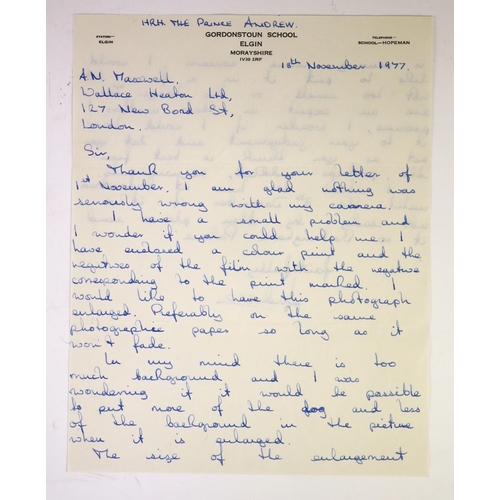 HRH. THE PRINCE ANDREW.
GORDONSTOUN SCHOOL
STATION:- ELGIN
TELEPHONE:- SCHOOL-HOPEMAN
ELGIN
MORAYSHIRE
IV30 2RF
10th November 1977.
A.N. Maxwell,
Wallace Heaton Ltd,
127 New Bond St,
London.
Sir,
Thank you for your letter of
1st November. I am glad nothing was
seriously wrong with my camera.
I have a small problem and
I wonder if you could help me. I
have enclosed a colour print and the
negatives of the film with the negative
corresponding to the print marked. I
would like to have this photograph
enlarged. Preferably on the same
photographic paper so long as it
won't fade.
In my mind there is too
much background and I was
wondering if it would be possible
to put more of the dog and less
of the background in the picture
when it is enlarged.
The size of the enlargement